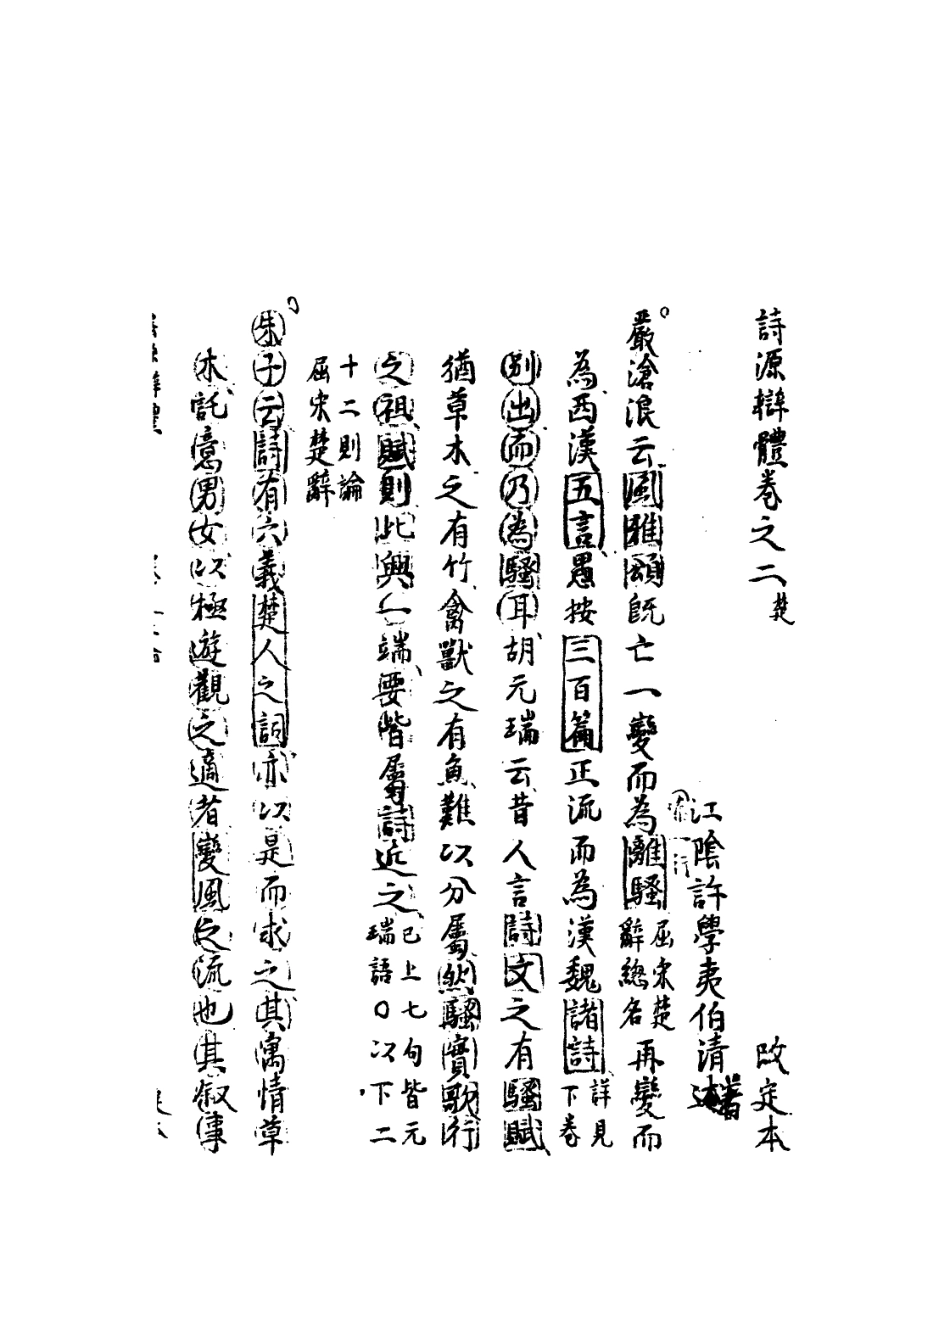 詩源辯體卷之二 楚 改定本
江陰許學夷伯清著
嚴滄浪云風雅頌既亡一變而為離騷屈宋楚辭總名再變而
為西漢五言愚按三百篇正流而為漢魏諸詩詳見下卷
別出而乃為騷耳胡元瑞云昔人言詩文之有騷賦
猶草木之有竹禽獸之有魚難以分屬然騷實歌行
之祖賦則比興一端要皆屬詩近之已上七句皆元瑞語○以下二
十二則論屈宋楚辭
朱子云詩有六義楚人之詞亦以是而求之其寓情草
木託意男女以極遊觀之適者變風之流也其敘事